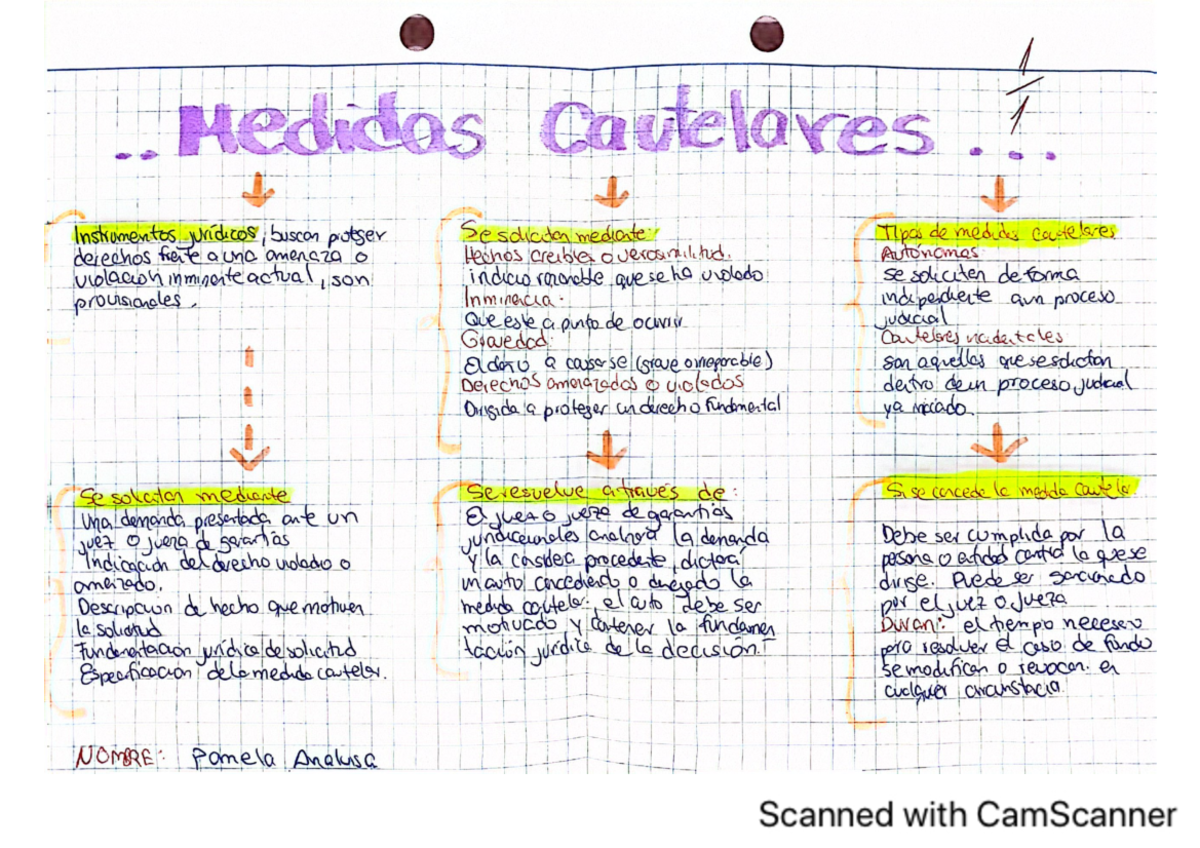 ..Medidas Cautelares...
1/1
Instrumentos jurídicos, buscan proteger
derechos frente a una amenaza o
violación inminente actual, son
provisionales.
Se solicitan mediante
Una demanda presentada ante un
juez o jueza de garantías
Indicación del derecho violado o
amenazado.
Descripcion de hecho que motiven
la solicitud
Fundamentación jurídica de solicitud
Especificación de la medida cautelar.
Se solicitan mediante:
Hechos creibles o verosimilitud.
indicio razonable que se ha violado
Inminencia.
Que este a punto de ocurrir
Gravedad:
El daño a causarse (grave o irreparable)
Derechos amenazados o violados
Dirigida a proteger un derecho fundamental
Se resuelve a través de:
El juez o jueza de garantías
juridiccionales analizará la demanda
y la considera procedente, dictará
un auto concediendo o denegado la
medida cautelar. el auto debe ser
motivado y contener la fundamen
tación jurídica de la decisión.
Tipos de medidas cautelares
Autónomas:
se soliciten de forma
independiente a un proceso
judicial
Cautelares incidentales
son aquellas que se solicitan
dentro de un proceso judicial
ya iniciado.
Si se concede la medida cautelar
Debe ser cumplida por la
persona o entidad contra la que se
dirige. Puede ser sancionado
por el juez o jueza
Duran: el tiempo necesario
para resolver el caso de fondo
se modifican o revocan en
cualquier circunstacia.
NOMBRE: Pamela Analuisa
Scanned with CamScanner